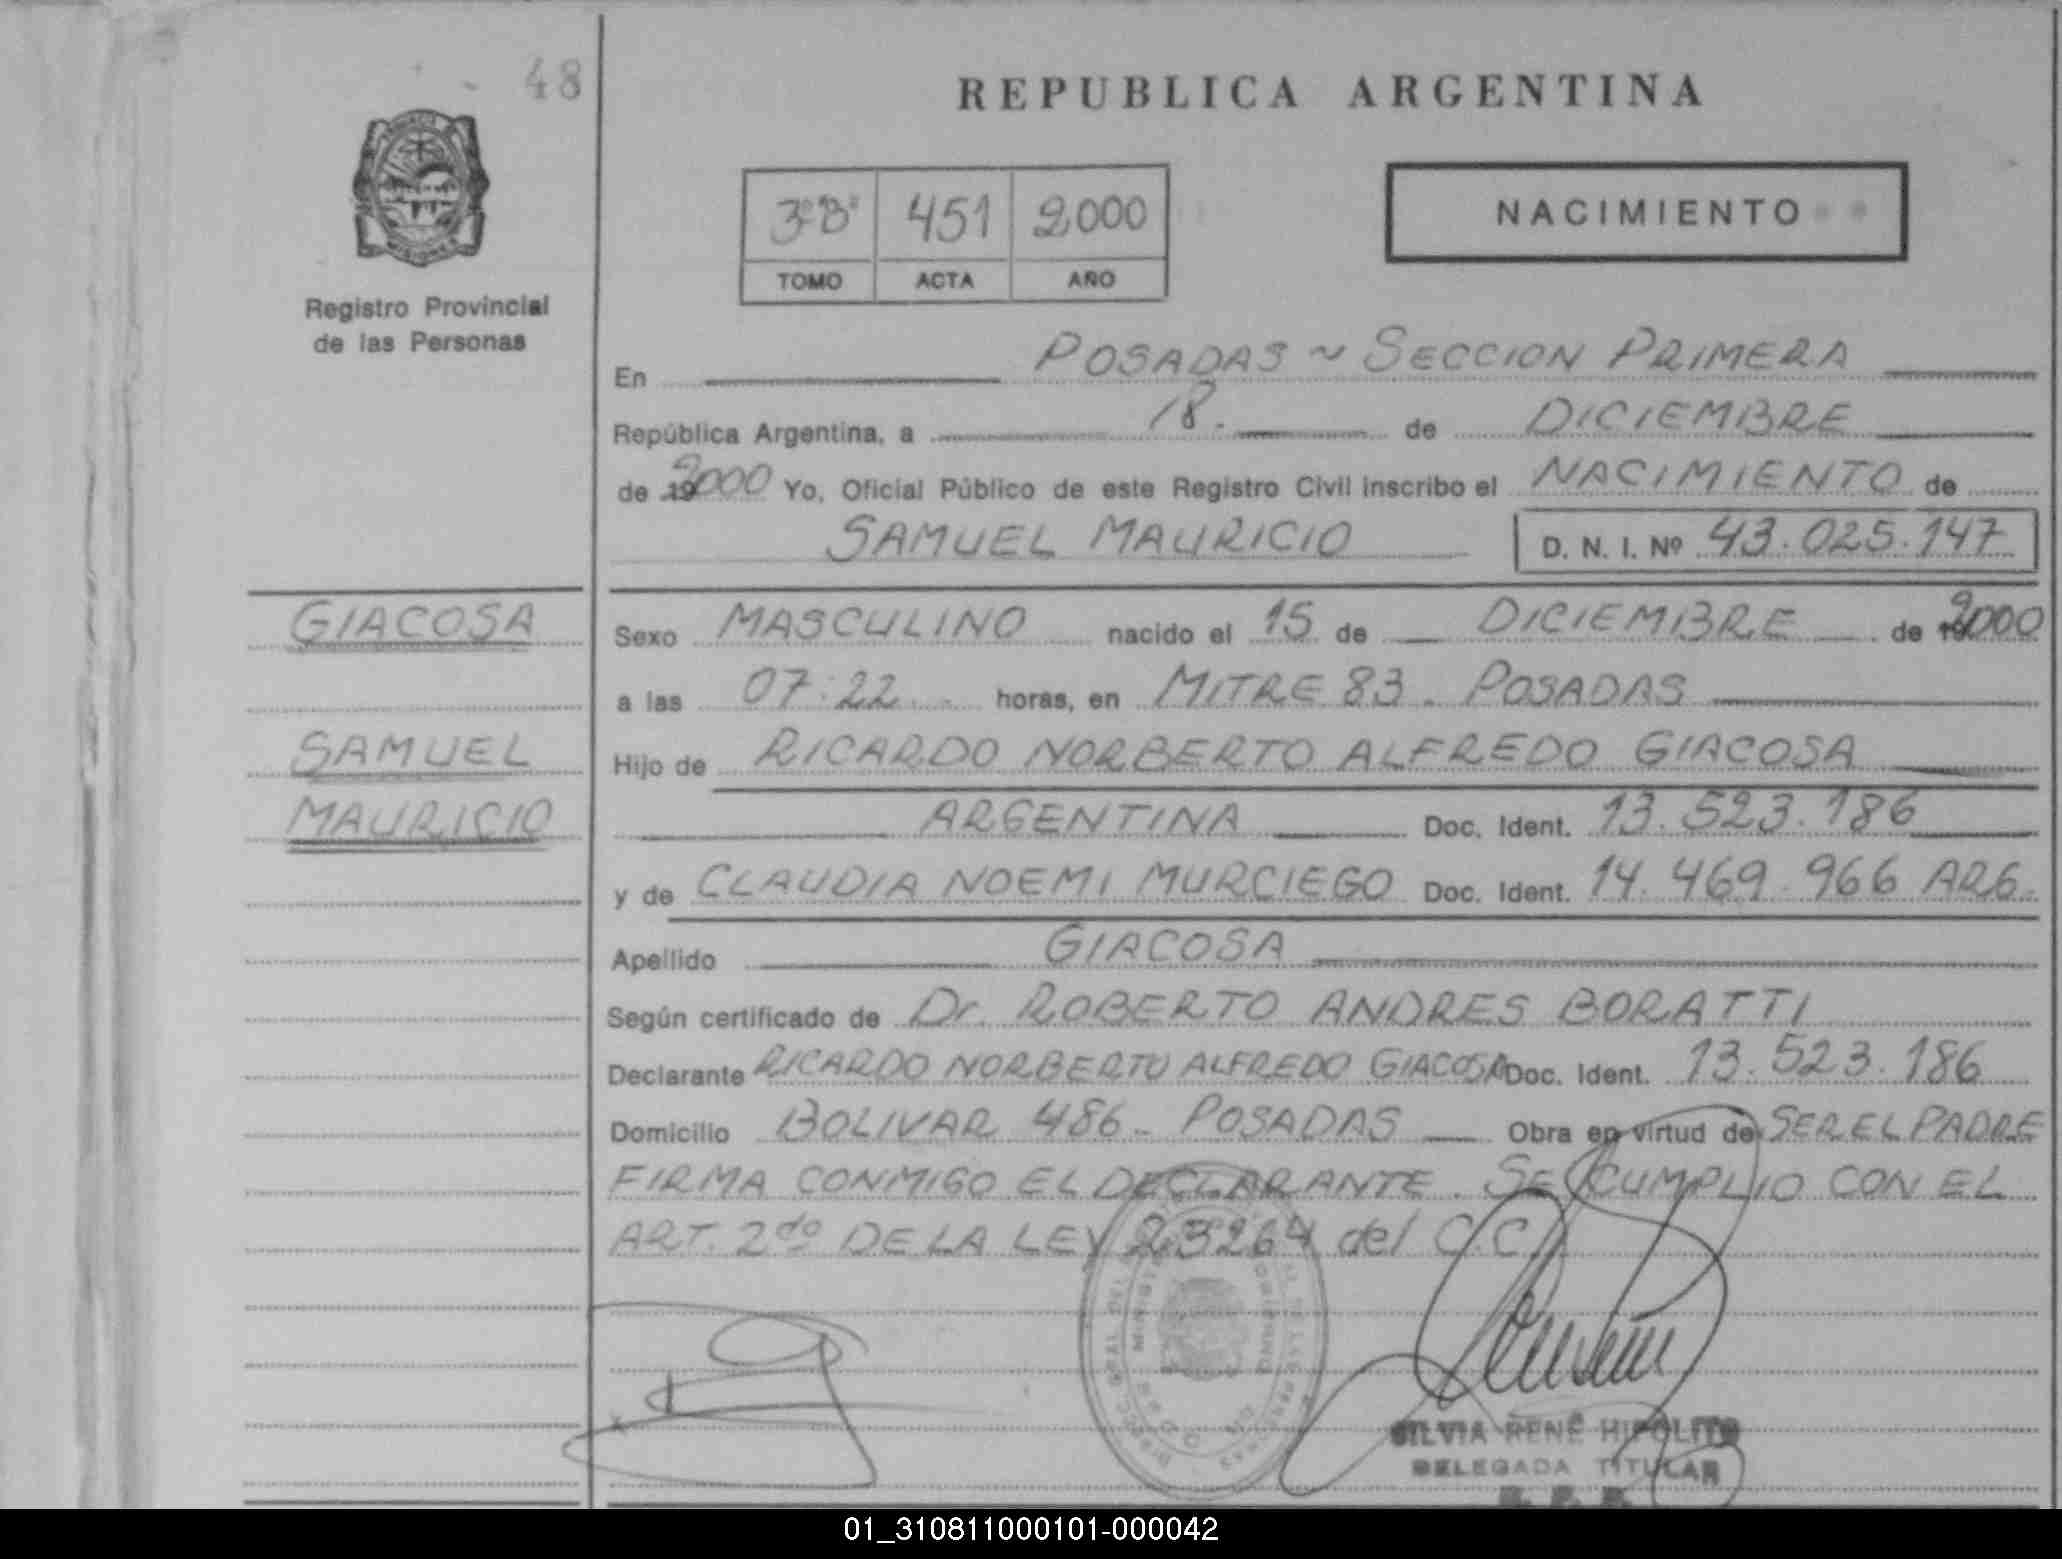 48
REPUBLICA ARGENTINA
3º"B" 451 2000
TOMO ACTA AÑO
NACIMIENTO
Registro Provincial
de las Personas
En POSADAS ~ SECCION PRIMERA
República Argentina, a 18. de DICIEMBRE
de 2000 Yo, Oficial Público de este Registro Civil inscribo el NACIMIENTO de
SAMUEL MAURICIO D. N. I. Nº 43.025.147
GIACOSA
Sexo MASCULINO nacido el 15 de DICIEMBRE de 2000
a las 07:22 horas, en MITRE 83 - POSADAS
SAMUEL
Hijo de RICARDO NORBERTO ALFREDO GIACOSA
MAURICIO
ARGENTINA Doc. Ident. 13.523.186
y de CLAUDIA NOEMI MURCIEGO Doc. Ident. 14.469.966 ARG.
Apellido GIACOSA
Según certificado de Dr. ROBERTO ANDRES BORATTI
Declarante RICARDO NORBERTO ALFREDO GIACOSA Doc. Ident. 13.523.186
Domicilio BOLIVAR 486 - POSADAS Obra en virtud de SER EL PADRE
FIRMA CONMIGO EL DECLARANTE. SE CUMPLIO CON EL
ART. 2do DE LA LEY 23264 del C.C.
SILVIA RENÉ HIPOLITO
DELEGADA TITULAR
01_310811000101-000042